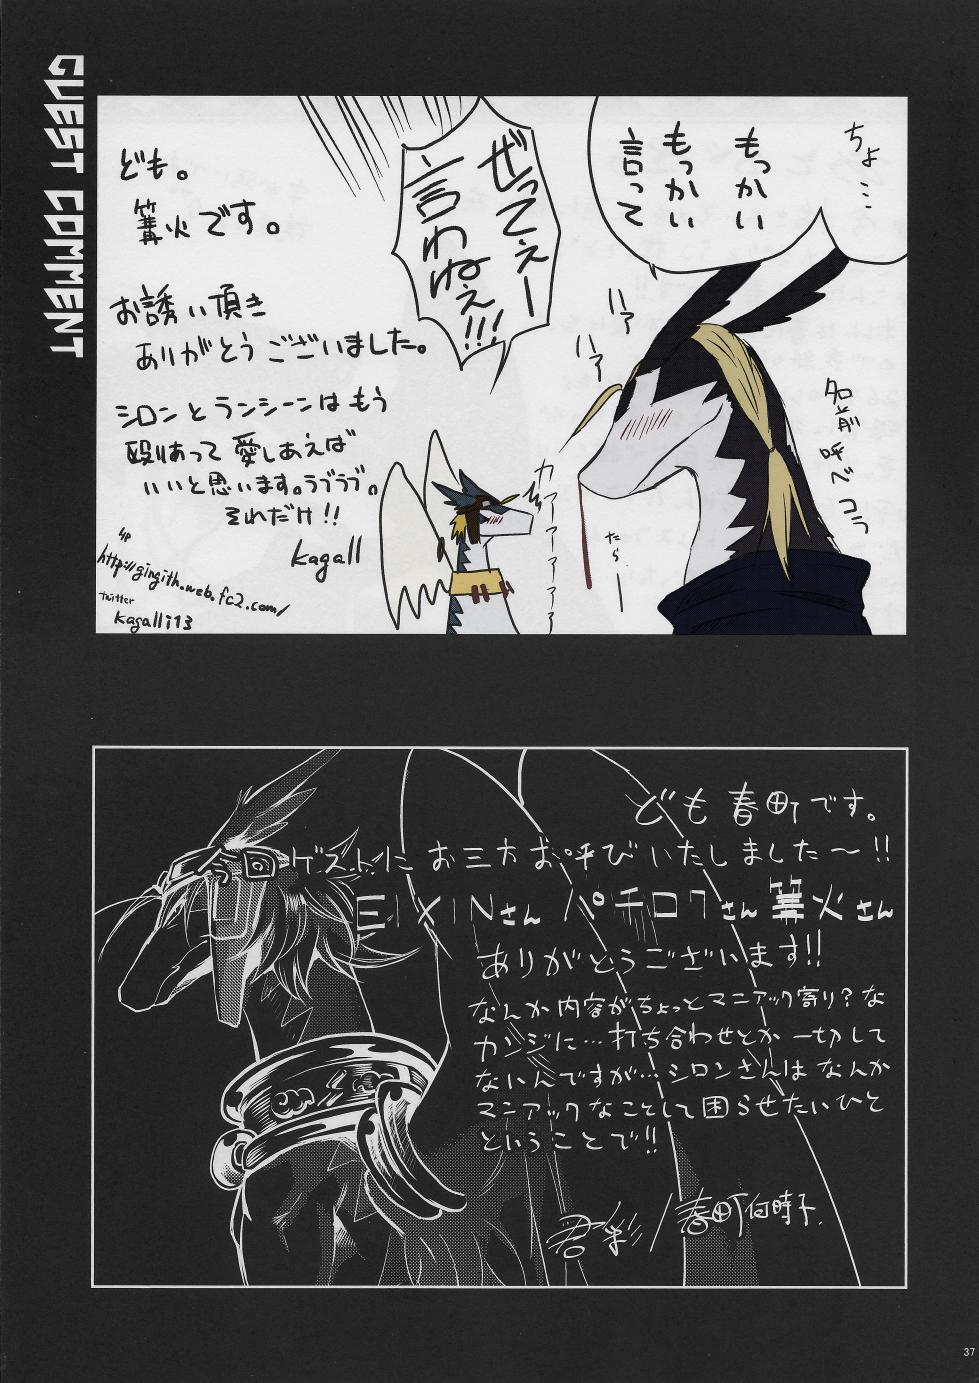 GUEST COMMENT
ちょ…
もっかい
もっかい
言って
ぜってぇー
言わねぇ!!!
ハァ
ハァ
名前呼べコラ
たらー
カァァァァァァ
ども。
篝火です。
お誘い頂き
ありがとうございました。
シロンとランシーンはもう
殴りあって愛しあえば
いいと思います。ラブラブ。
それだけ!!
kagall
HP
http://gingith.web.fc2.com/
twitter
kagalli13
ども春町です。
ゲストにお三方お呼びいたしました〜!!
EIXINさん パチロクさん 篝火さん
ありがとうございます!!
なんか内容がちょっとマニアック寄り?な
カンジに…打ち合わせとか一切して
ないんですが…シロンさんはなんか
マニアックなことして困らせたいひと
ということで!!
君彩/春町何時子
37